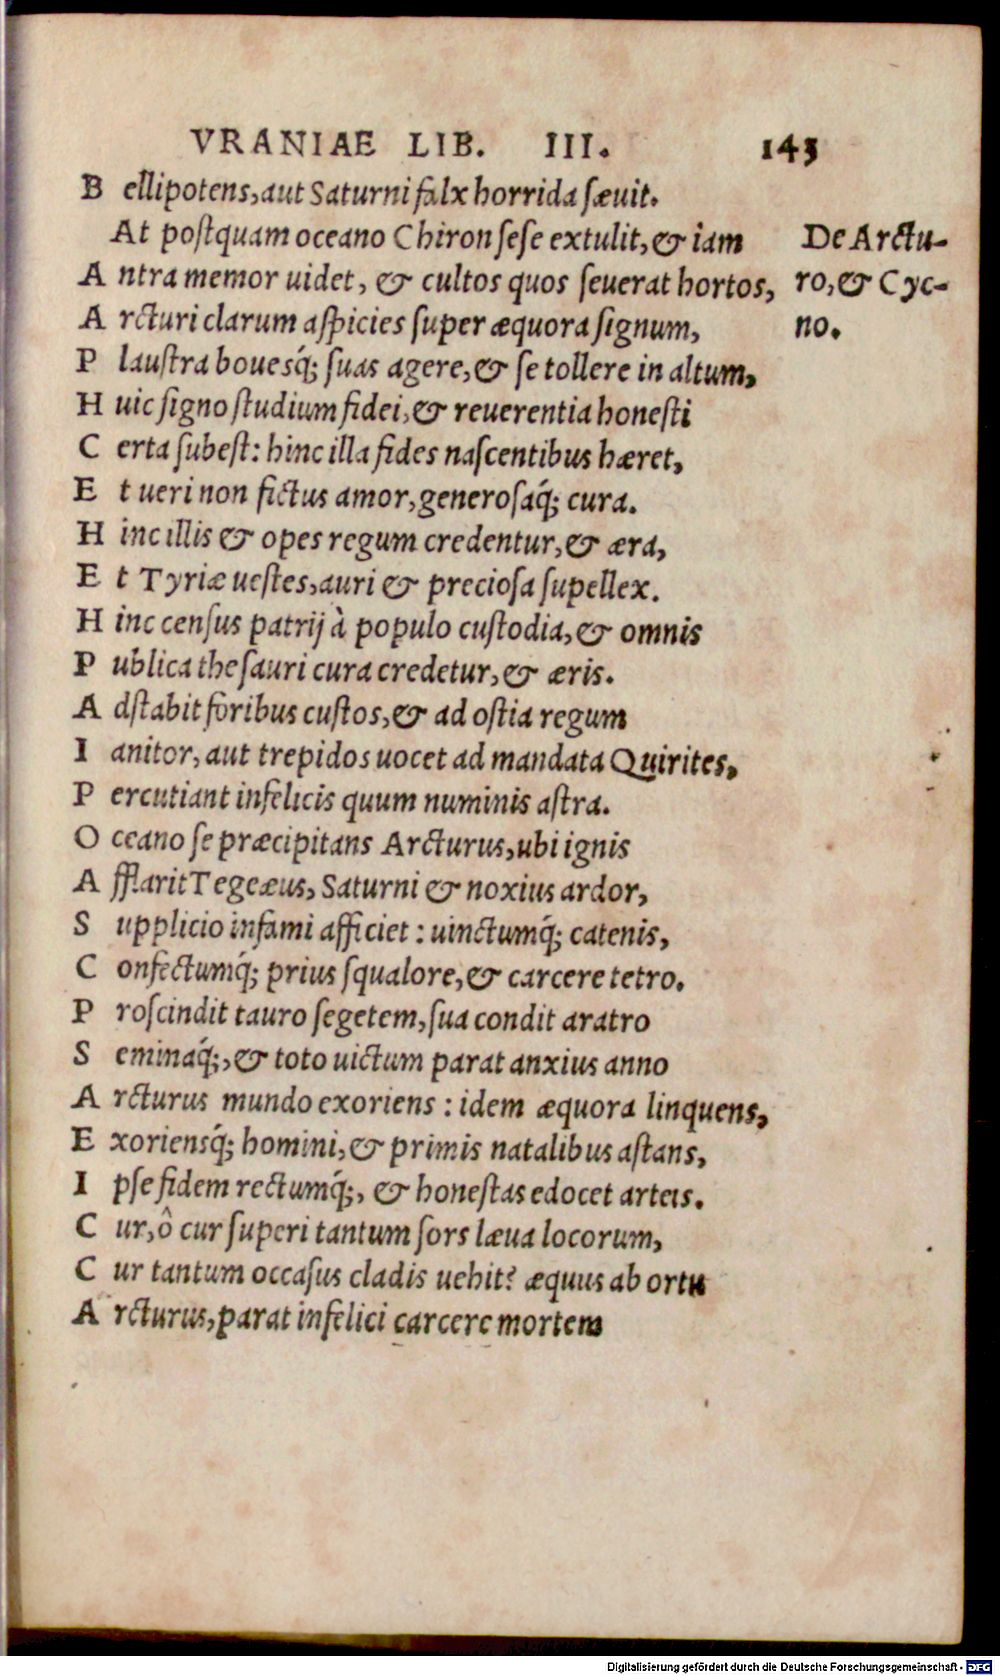 VRANIAE LIB. III. 143
Bellipotens, aut Saturni falx horrida sæuit.
At postquam oceano Chiron sese extulit, & iam
De Arctu-
Antra memor uidet, & cultos quos seuerat hortos,
ro, & Cyc-
Arcturi clarum aspicies super æquora signum,
no.
Plaustra bouesq́; suas agere, & se tollere in altum,
Huic signo studium fidei, & reuerentia honesti
Certa subest: hinc illa fides nascentibus hæret,
Et ueri non fictus amor, generosaq́; cura.
Hinc illis & opes regum credentur, & æra,
Et Tyriæ uestes, auri & preciosa supellex.
Hinc census patrij à populo custodia, & omnis
Publica thesauri cura credetur, & æris.
Adstabit foribus custos, & ad ostia regum
Ianitor, aut trepidos uocet ad mandata Quirites,
Percutiant infelicis quum numinis astra.
Oceano se præcipitans Arcturus, ubi ignis
Afflarit Tegeæus, Saturni & noxius ardor,
Supplicio infami afficiet: uinctumq́; catenis,
Confectumq́; prius squalore, & carcere tetro.
Proscindit tauro segetem, sua condit aratro
Seminaq́;, & toto uictum parat anxius anno
Arcturus mundo exoriens: idem æquora linquens,
Exoriensq́; homini, & primis natalibus astans,
Ipse fidem rectumq́;, & honestas edocet arteis.
Cur, ô cur superi tantum sors læua locorum,
Cur tantum occasus cladis uehit? æquus ab ortu
Arcturus, parat infelici carcere mortem
Digitalisierung gefördert durch die Deutsche Forschungsgemeinschaft - DFG